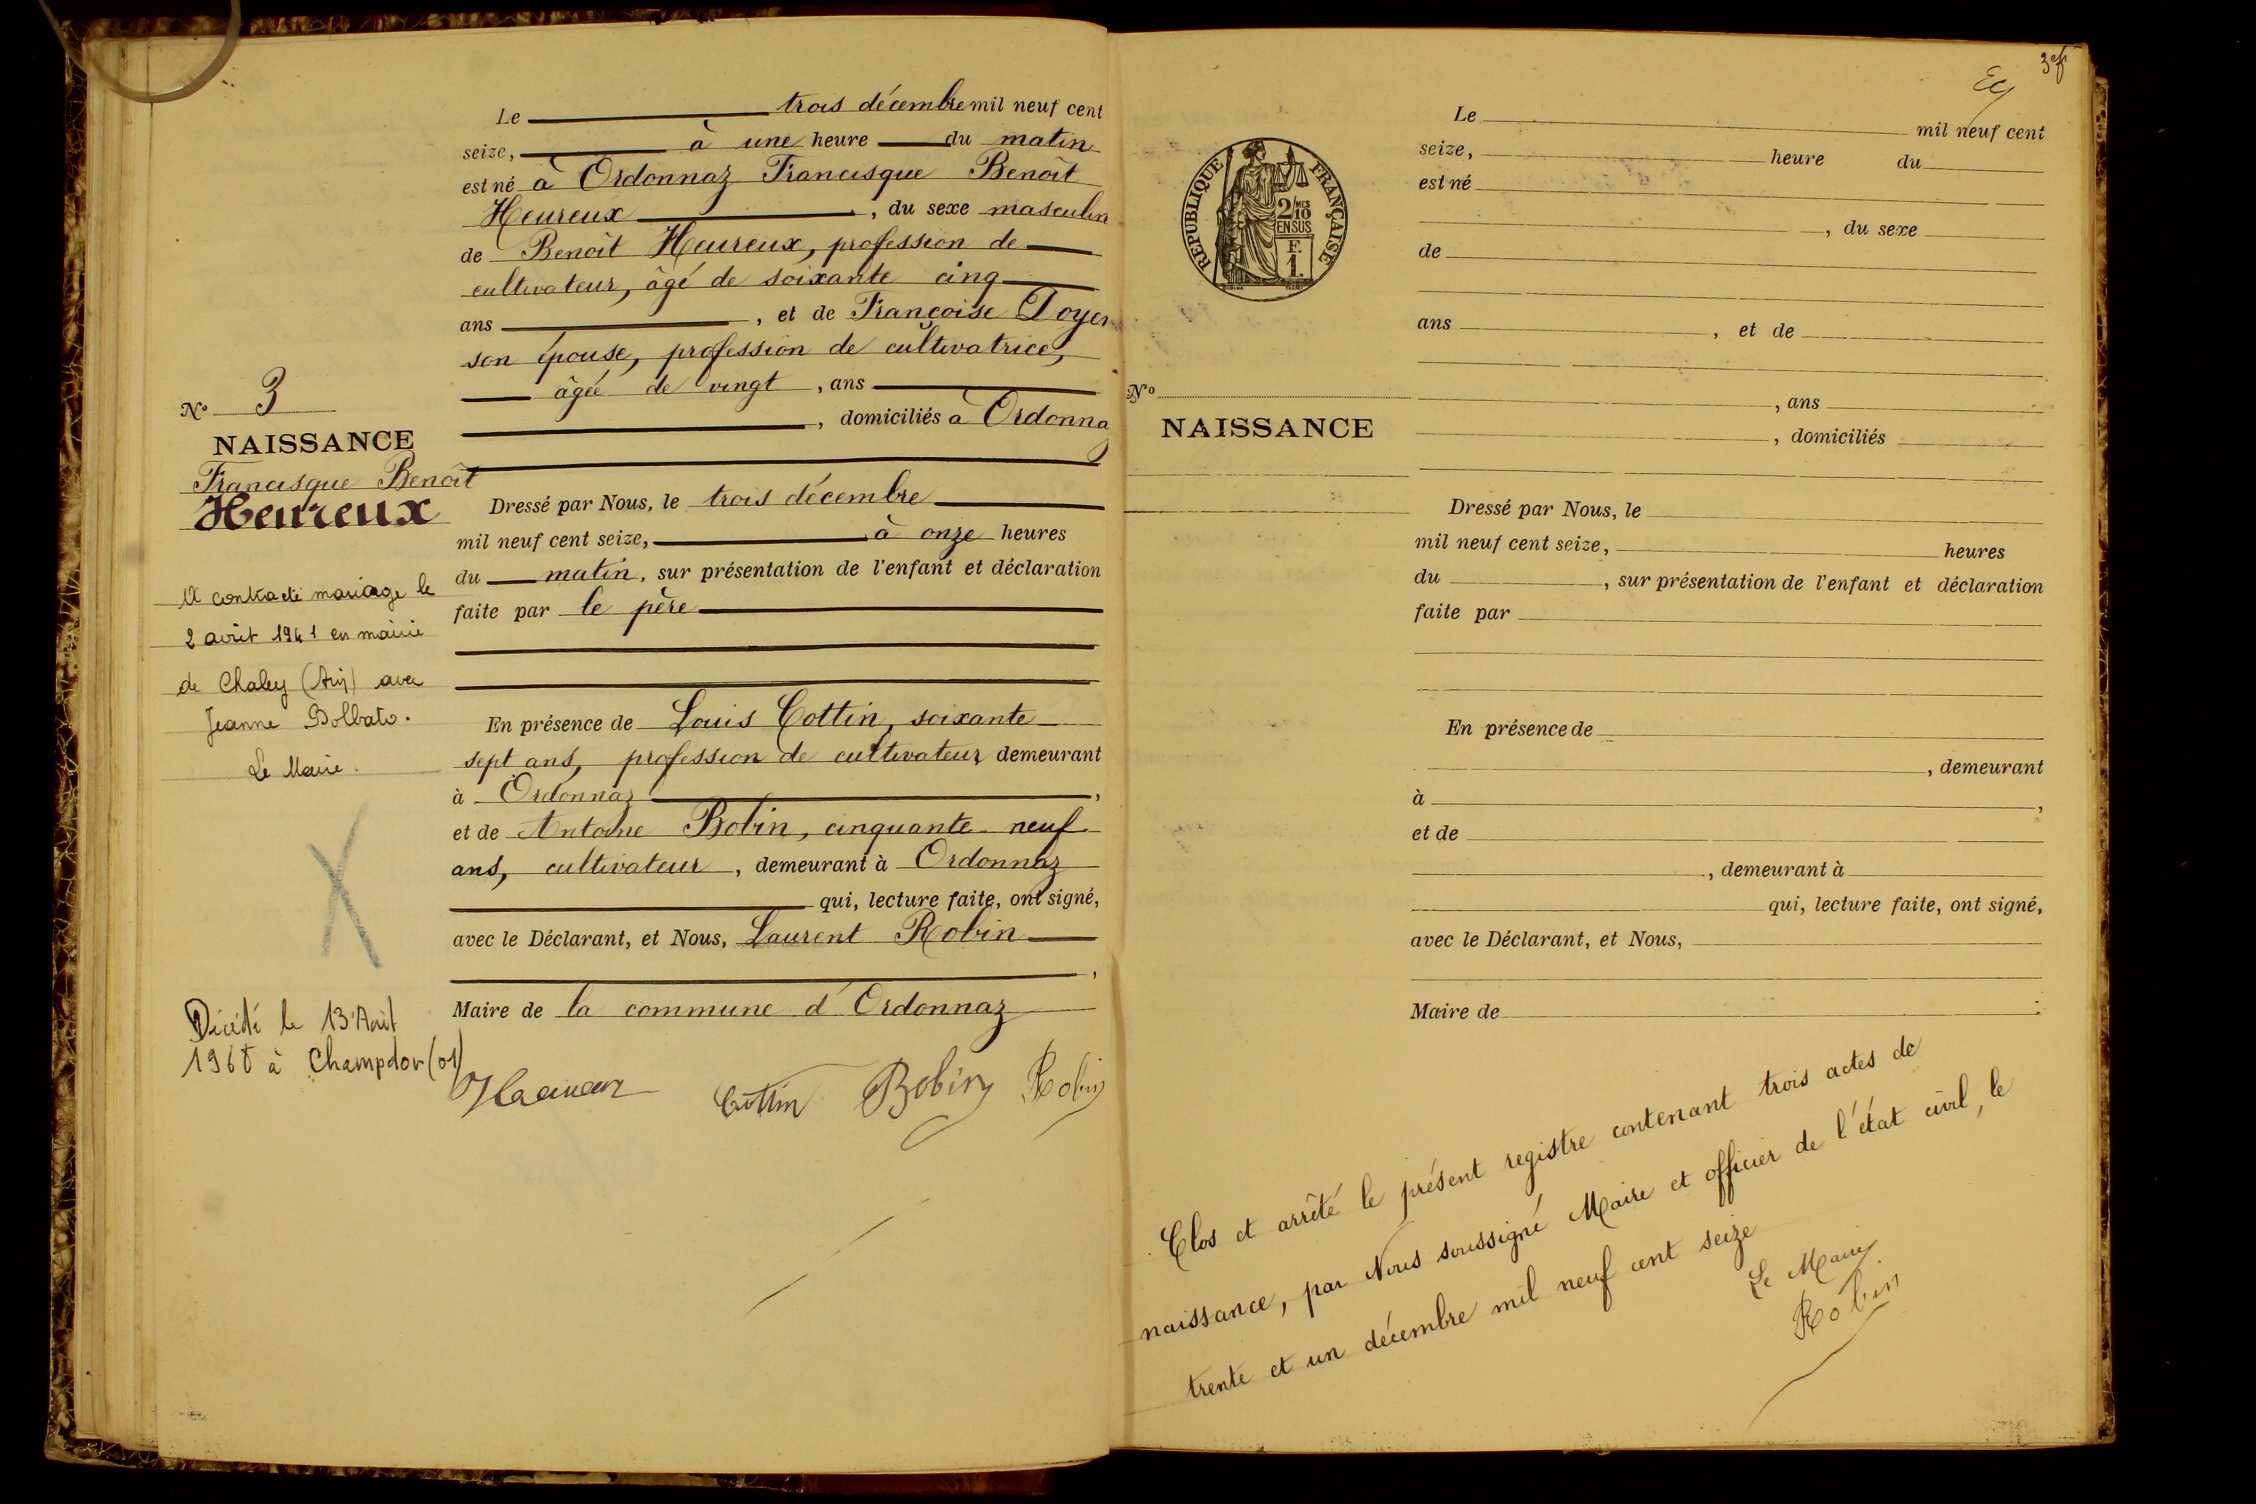 Le trois décembre mil neuf cent
seize, à une heure du matin
est né à Ordonnaz Francisque Benoît
Heureux, du sexe masculin
de Benoît Heureux, profession de
cultivateur, âgé de soixante cinq
ans, et de Françoise Doyen
son épouse, profession de cultivatrice,
âgée de vingt, ans
, domiciliés à Ordonnaz
No 3
NAISSANCE
Francisque Benoît
Heureux
Dressé par Nous, le trois décembre
mil neuf cent seize, à onze heures
du matin, sur présentation de l'enfant et déclaration
faite par le père
A contracté mariage le
2 avril 1941 en mairie
de Chaley (Ain) avec
Jeanne Bolbato.
Le Maire.
En présence de Louis Cottin, soixante
sept ans, profession de cultivateur, demeurant
à Ordonnaz,
et de Antoine Bobin, cinquante neuf
ans, cultivateur, demeurant à Ordonnaz
qui, lecture faite, ont signé,
avec le Déclarant, et Nous, Laurent Robin
,
Maire de la commune d'Ordonnaz
Décédé le 13 Août
à Champdor (01)
Cottin Bobin Robin
3
Le mil neuf cent
seize, heure du
est né
, du sexe
de
ans, et de
, ans
, domiciliés
RÉPUBLIQUE FRANÇAISE
2/10 MES
EN SUS
F.
1.
No
NAISSANCE
Dressé par Nous, le
mil neuf cent seize, heures
du, sur présentation de l'enfant et déclaration
faite par
En présence de
, demeurant
à,
et de
, demeurant à
qui, lecture faite, ont signé,
avec le Déclarant, et Nous,
Maire de :
Clos et arrêté le présent registre contenant trois actes de
naissance, par Nous soussigné Maire et officier de l'état civil, le
trente et un décembre mil neuf cent seize
Le Maire
Robin